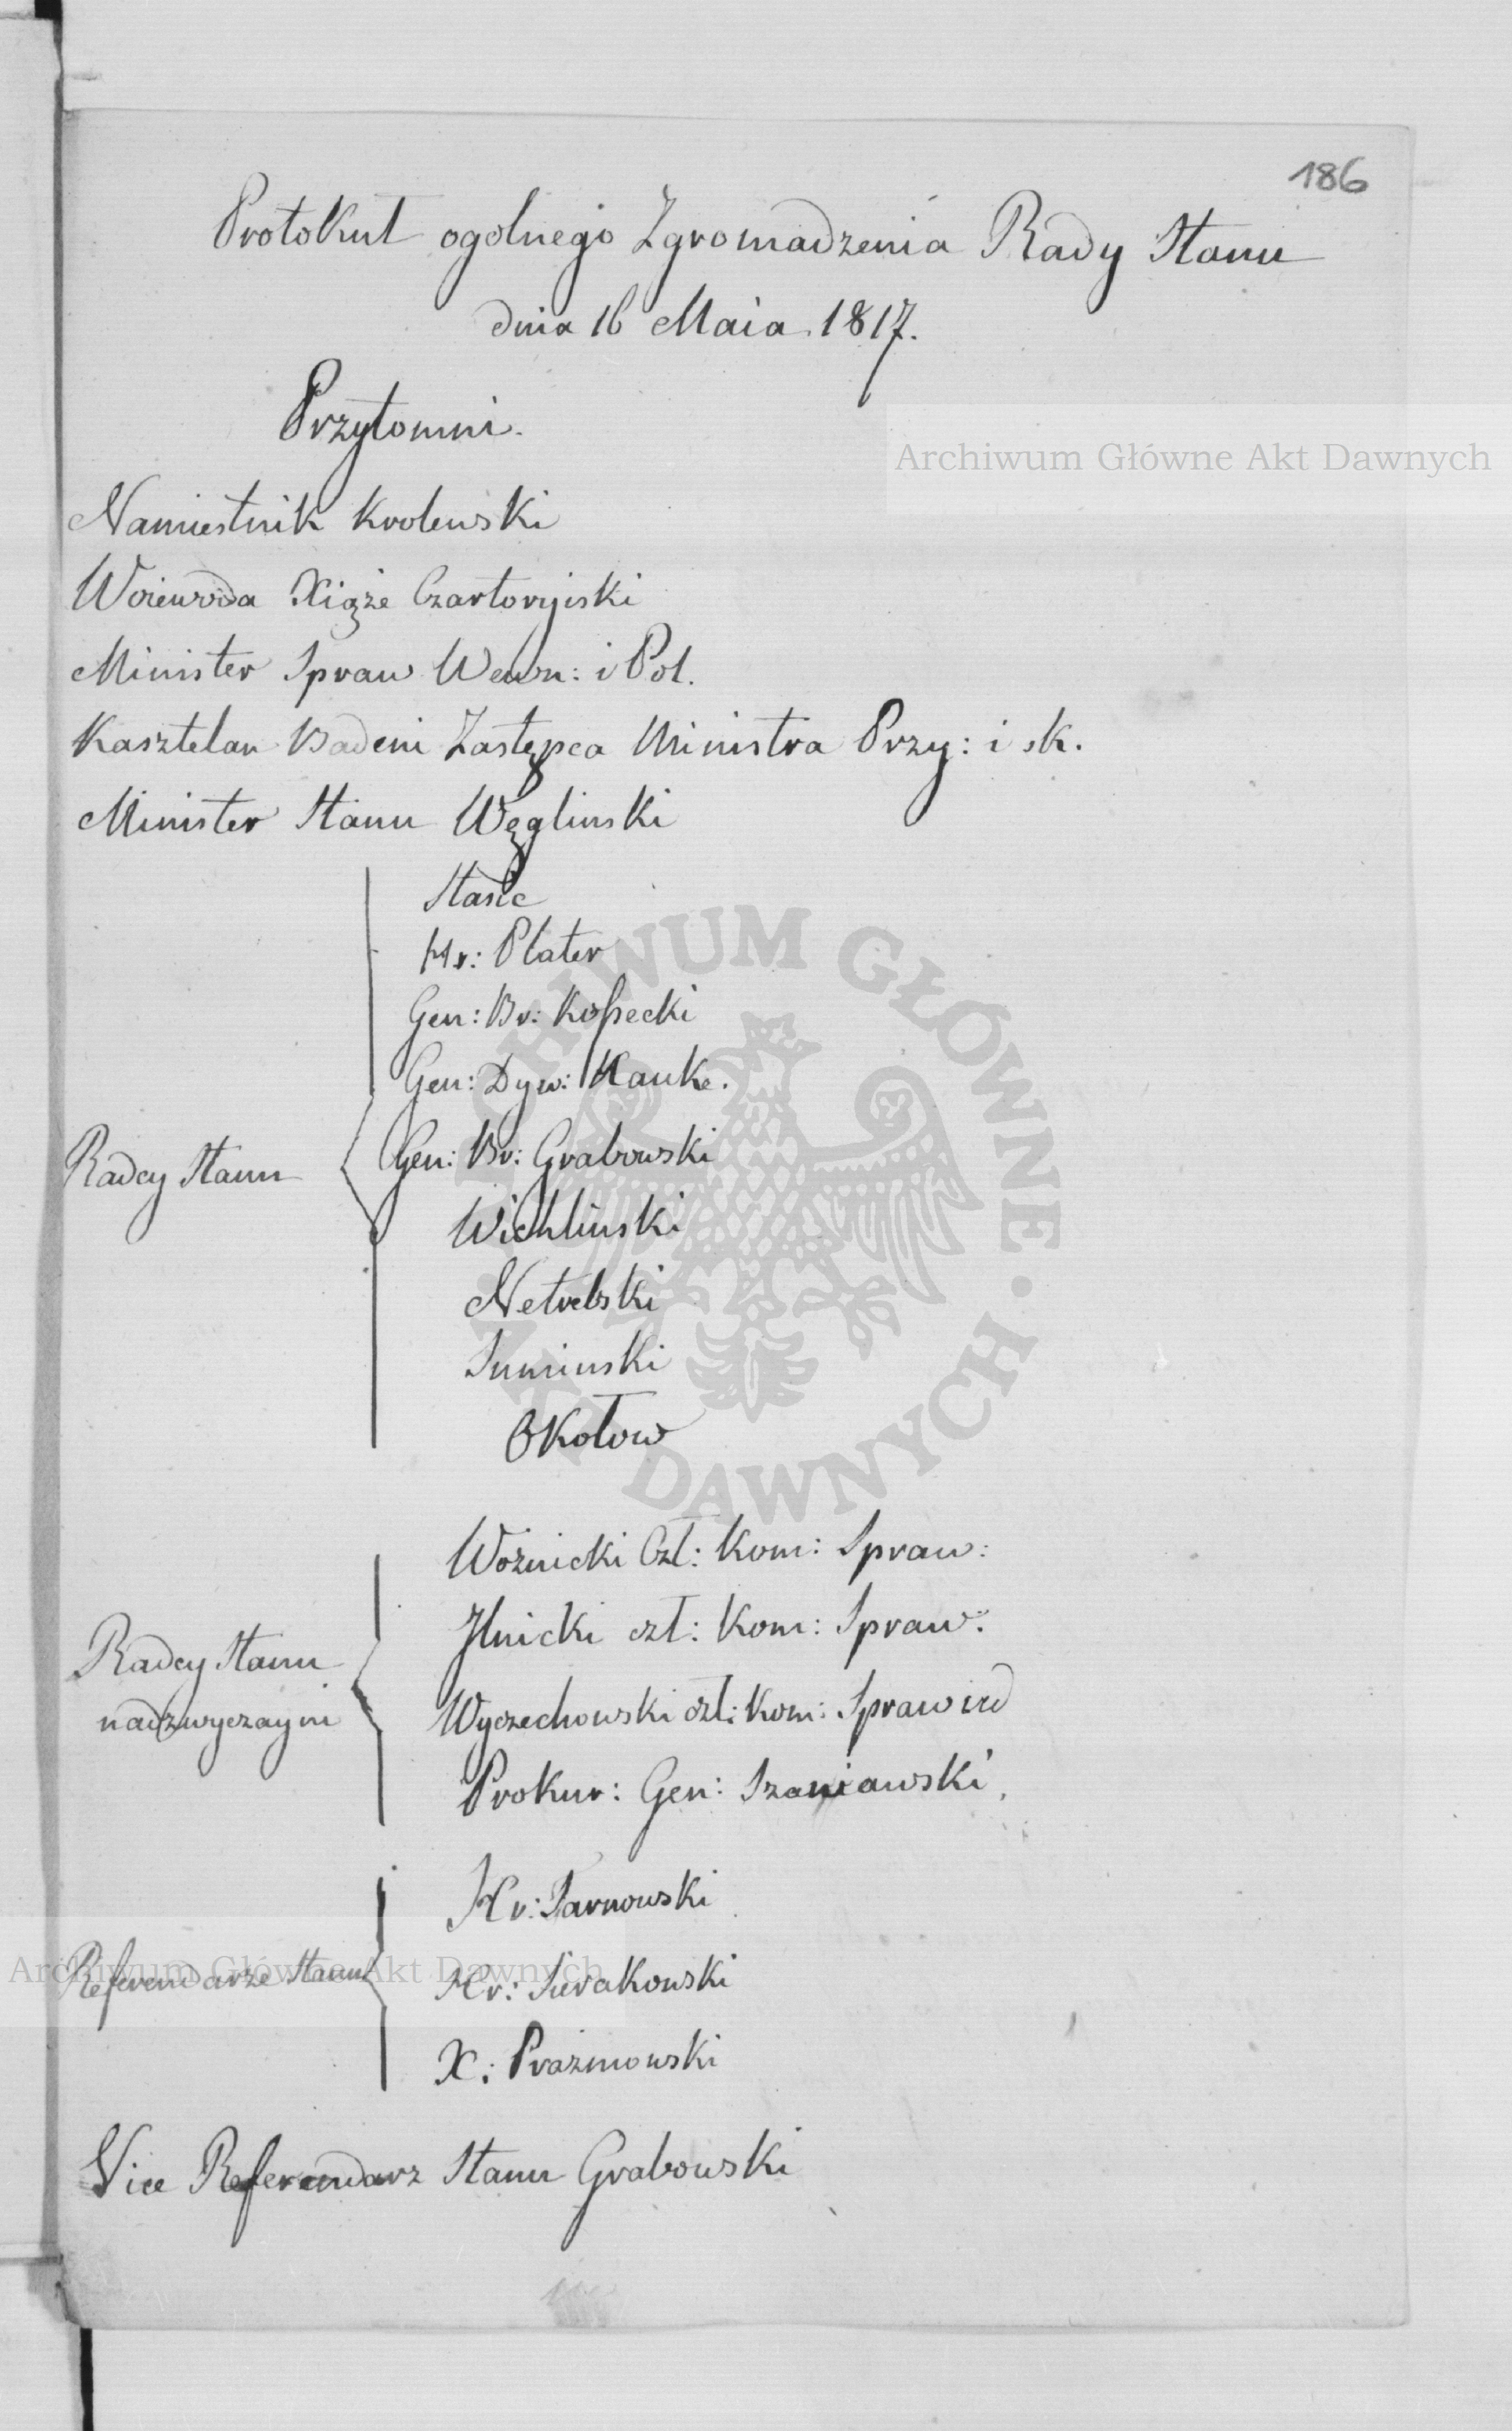 186
Protokuł ogolnego Zgromadzenia Rady Stanu
dnia 16 Maia 1817.
Przytomni.
Archiwum Główne Akt Dawnych
Namiestnik Krolewski
Woiewoda Xiąże Czartoryiski
Minister Spraw Wewn: i Pol.
Kasztelan Badeni Zastępca Ministra Przy: i sk.
Minister Stanu Węglinski
Radcy Stanu
Stasic
Hr: Plater
Gen: Br: Kossecki
Gen: Dyw: Hauke.
Gen: Br: Grabowski
Wichlinski
Netrebski
Suminski
Okołow
ARCHIWUM GŁÓWNE · AKT DAWNYCH ·
Radcy Stanu
nadzwyczayni
Woźnicki Czł: Kom: Spraw:
Ilnicki czł: Kom: Spraw:
Wyczechowski czł: Kom: Sprawied
Prokur: Gen: Szaniawski
Referendarze Stanu
Hr: Tarnowski
Hr: Sierakowski
X: Prażmowski
Archiwum Główne Akt Dawnych
Vice Referendarz Stanu Grabowski